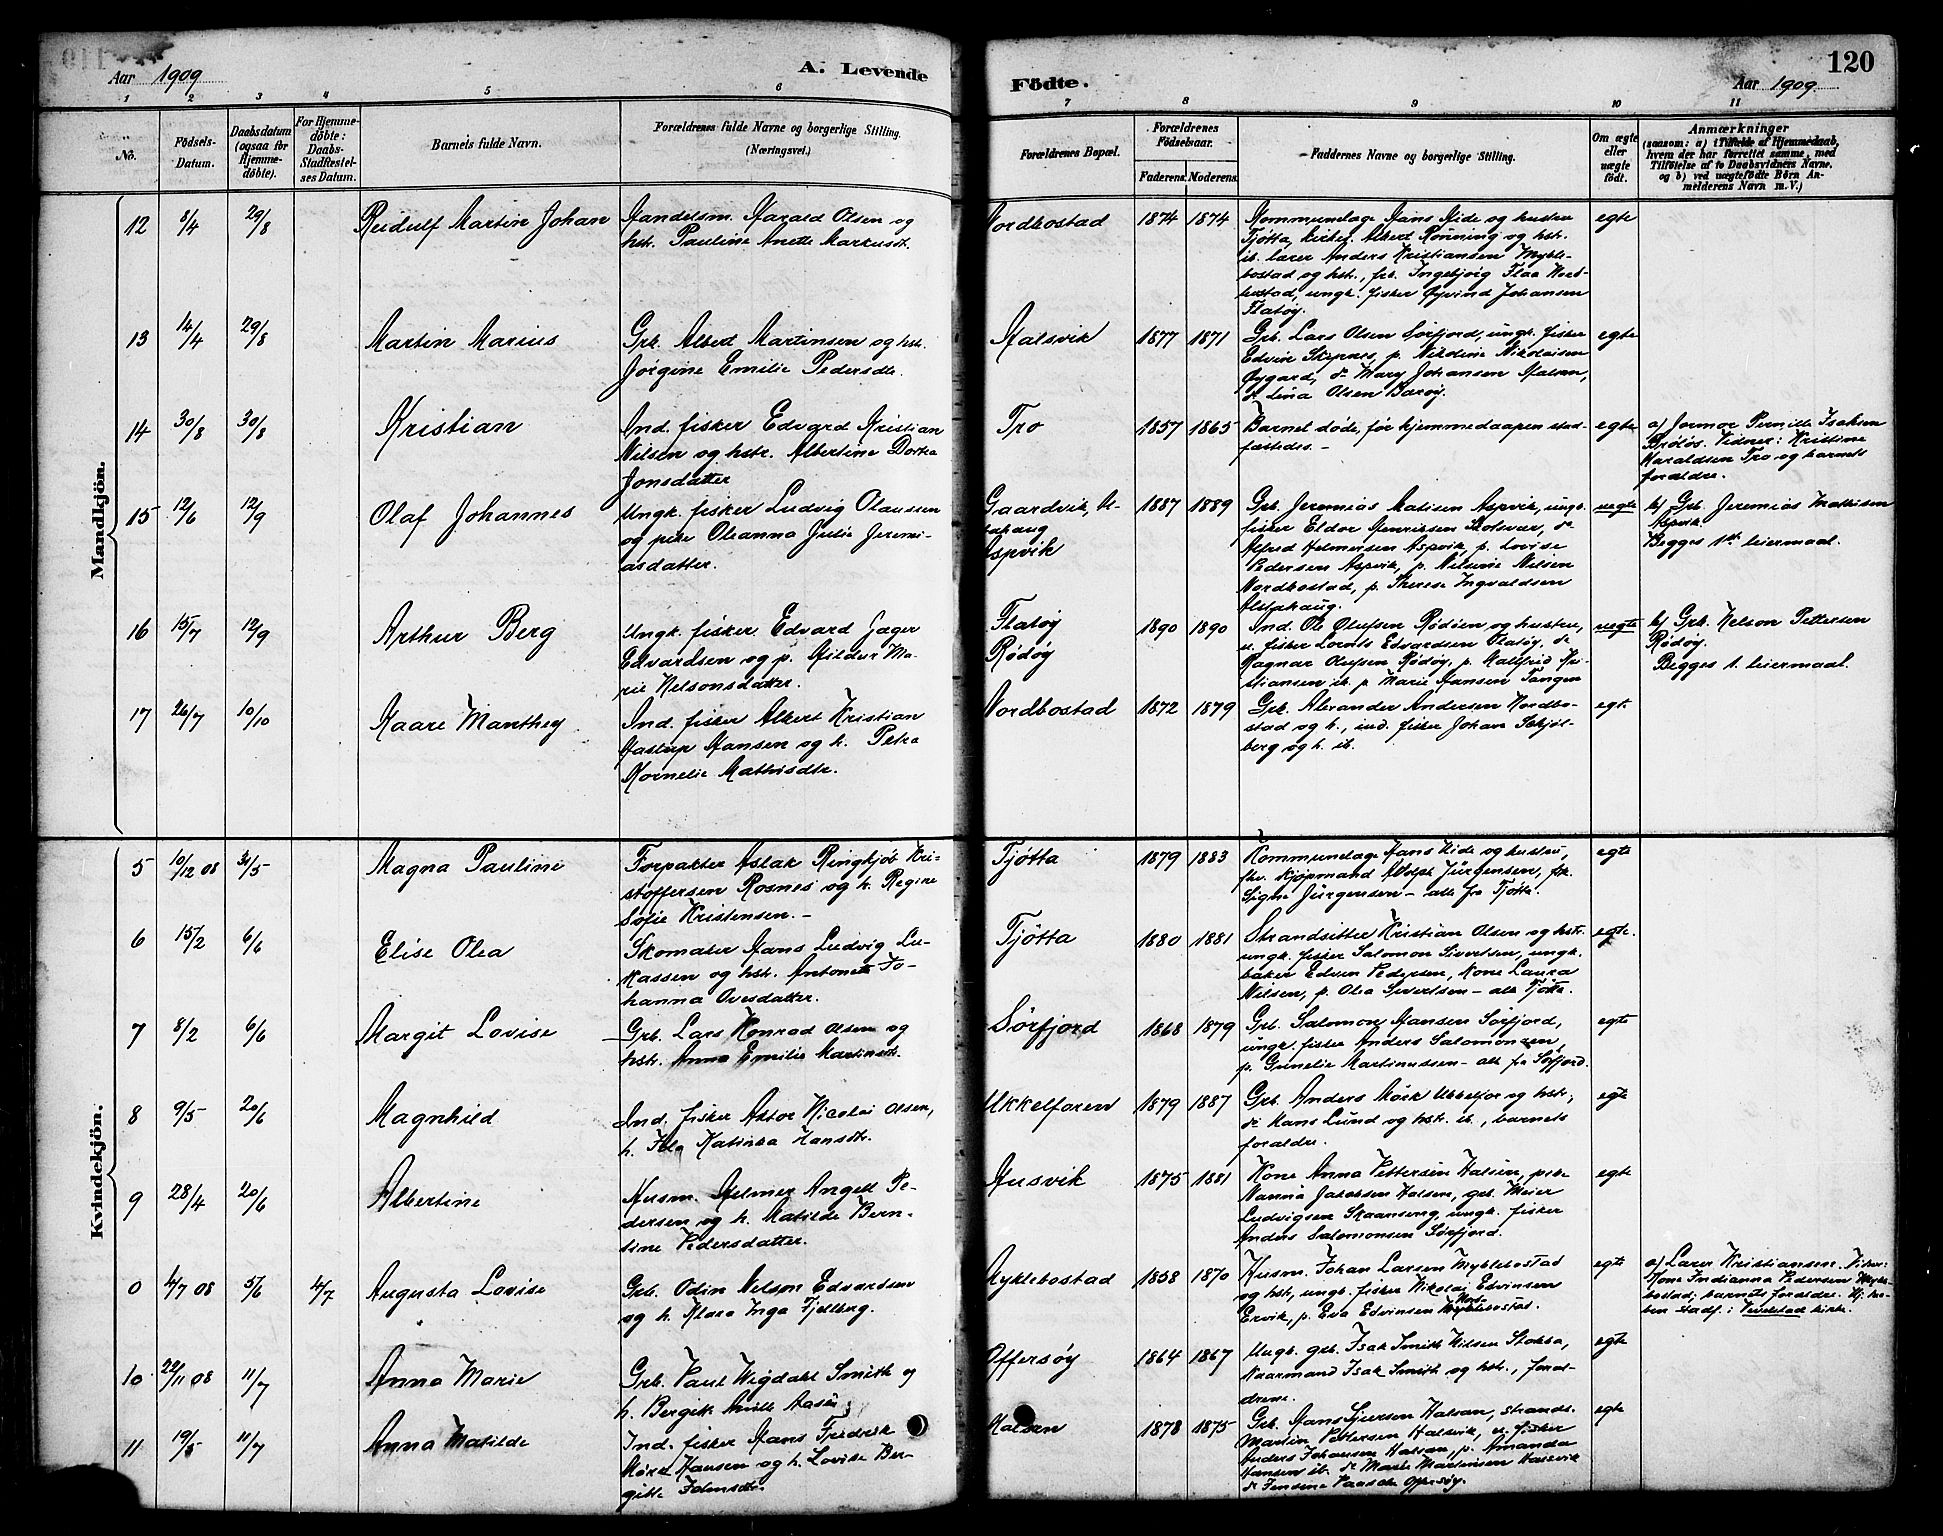 Aar 1909
A. Levende
Födte.
Aar 1909
120
1 2 3 4 5 6 7 8 9 10 11
No.
Födsels-Datum.
Daabsdatum (ogsaa for Hjemmedöbte).
For Hjemmedöbte: Daabs-Stadfæstelses Datum.
Barnets fulde Navn.
Forældrenes fulde Navne og borgerlige Stilling. (Næringsvei.)
Forældrenes Bopæl.
Forældrenes Födselsaar.
Faderens. Moderens.
Faddernes Navne og borgerlige Stilling.
Om ægte eller uægte födt.
Anmærkninger
(saasom: a) i Tilfælde af Hjemmedaab, hvem der har forrettet samme, med Tilföielse af to Daabsvidners Navne, og b) ved uægtefödte Börn Anmelderens Navn m. V.)
Mandkjön.
12 8/4 29/8 Reidulf Martin Johan
Handelsm. Harald Olsen og
hst. Pauline Anette Markusdt.
Nordbostad 1874 1874
Kommunelæge Hans Hide og hustru
Tjøtta, kirkes. Albert Rønning og hst.
ib. lærer Anders Kristiansen Mykle-
bostad og hst., frk. Ingebjørg Flaa Nord-
bostad, ungk. fisker Øyvind Johansen
Flatøy.
egte
13 14/4 29/8 Martin Marius
Grb. Albert Martinsen og hst.
Jørgine Emilie Pedersdtr.
Halsvik 1877 1871
Grb. Lars Olsen Sørfjord, ungk. fisker
Edvin Skipnes, p. Nikoline Nikolaisen
Øygard, do Mary Johansen Halsan,
do Lina Olsen Barøy.
egte
14 30/8 30/8 Kristian
Ind. fisker Edvard Kristian
Nilsen og hstr. Albertine Dortea
Jonsdatter
Tro 1857 1865
Barnet døde, før hjemmedaapen stad-
fæstedes. –
egte
a) Jormor Pernille Isaksen
Brøløs. Vidner: Kristine
Haraldsen Tro og barnets
forældre.
15 12/6 12/9 Olaf Johannes
Ungk. fisker Ludvig Olaussen
og pike Oleanna Julie Jeremi-
asdatter.
Gaardvik, Al-
stahaug
Aspvik
1887 1889
Grb. Jeremias Matisen Aspvik, ungk.
fisker Eldor Henriksen Blotsvær, do
Alfred Helmersen Aspvik, p. Lovise
Pedersen Aspvik, p. Nilsine Nilsen
Nordbostad, p. Therese Ingvaldsen
Alstahaug.
uegte
b) Grb. Jeremias Mathisen
Aspvik.
Begges 1ste leiermaal.
16 15/7 12/9 Arthur Berg
Ungk. fisker Edvard Jæger
Edvardsen og p. Hildur Ma-
rie Nelsonsdatter.
Flatøy
Rødøy
1890 1890
Ind. Ole Olufsen Rødøen og hustru,
u. fisker Lorents Edvardsen Flatøy, do
Ragnar Olufsen Rødøy, p. Halfrid Kri-
stiansen ib. p. Marie Hansen Tangen
uegte
b) Grb. Nelson Pettersen
Rødøy.
Begges 1. leiermaal.
17 26/7 10/10 Kaare Manthey
Ind. fisker Albert Kristian
Hastrup Hansen og h. Petra
Kornelie Mathisdtr.
Nordbostad 1872 1879
Grb. Alexander Andersen Nordbo-
stad og h., ind. fisker Johan Schjøl-
berg og h. ib.
egt.
Kvindekjön.
5 10/12 08 31/5 Magna Pauline
Forpakter Aslak Ringkjøb Kri-
stoffersen Rosnes og h. Regine
Sofie Kristensen. –
Tjøtta 1879 1883
Kommunelæge Hans Hide og hustru,
fhv. kjøpmand Adolph Jürgensen, frk.
Signe Jürgensen – alle fra Tjøtta.
egte
6 15/2 6/6 Elise Olea
Skomaker Hans Ludvig Lu-
kassen og hst. Antonette Jo-
hanna Ovesdatter.
Tjøtta 1880 1881
Strandsitter Kristian Olsen og hst.
ungk. fisker Salomon Sivertsen, ungk.
baker Edvin Pedersen, kone Laura
Nilsen, p. Olea Sivertsen – alle Tjøtta.
egte.
7 8/2 6/6 Margit Lovise
Grb. Lars Konrad Olsen og
hst. Anna Emilie Martinsdt.
Sørfjord 1868 1879
Grb. Salomon Hansen Sørfjord,
ungk. fisker Anders Salomonsen,
p. Gunelie Martinussen – alle fra Sørfjord.
egte
8 9/5 20/6 Magnhild
Ind. fisker Astor Nicolai Olsen,
h. Ida Katinka Hansdtr.
Ukkelforen 1879 1887
Grb. Anders Mørk Ukkelfor og hst.,
do Hans Lund og hst. ib., barnets
forældre.
egte
9 28/4 20/6 Albertine
Husm. Helmer Angell Pe-
dersen og h. Matilde Bern-
tine Pedersdatter.
Husvik 1875 1881
Kone Anna Pettersen Halsen, pike
Nanna Jacobsen Halsen, grb. Meier
Ludvigsen Skaanseng, ungk. fisker
Anders Salomonsen Sørfjord.
egte
0 4/7 08 5/6 4/7 Augusta Lovise
Grb. Odin Nelson Edvardsen
og h. Klara Inga Fjelberg.
Myklebostad 1858 1870
Husm. Johan Larsen Myklebostad
og hst., ungk. fisker Nikolai Edvinsen
Ervik, p. Eva Edvinsen Nordbostad.
egte
a) Lærer Kristiansen. Vidner:
Kone Indianna Pedersen Mykle-
bostad, barnets forældre.
10 22/11 08 11/7 Anna Marie
Grb. Paul Wigdahl Smith og
h. Bergitte Amille Aasen
Offersøy 1864 1867
Ungk. grb. Isak Smith Nilsen Stokka,
Kaarmand Isak Smith og hst., foræl-
drene.
egte
11 19/5 11/7 Anna Matilde
Ind. fisker Hans Fredrik
Mörk Hansen og h. Lovise Ber-
gitte Johnsdtr.
Halsen 1878 1875
Grb. Hans Sjursen Halsan, strands.
Martin Pettersen Halsvik, u. fisker
Anders Johansen Halsan, p. Amanda
Hansen ib. do Marie Martinsen Halsvik
do Jensine Paasche Offersøy.
egte